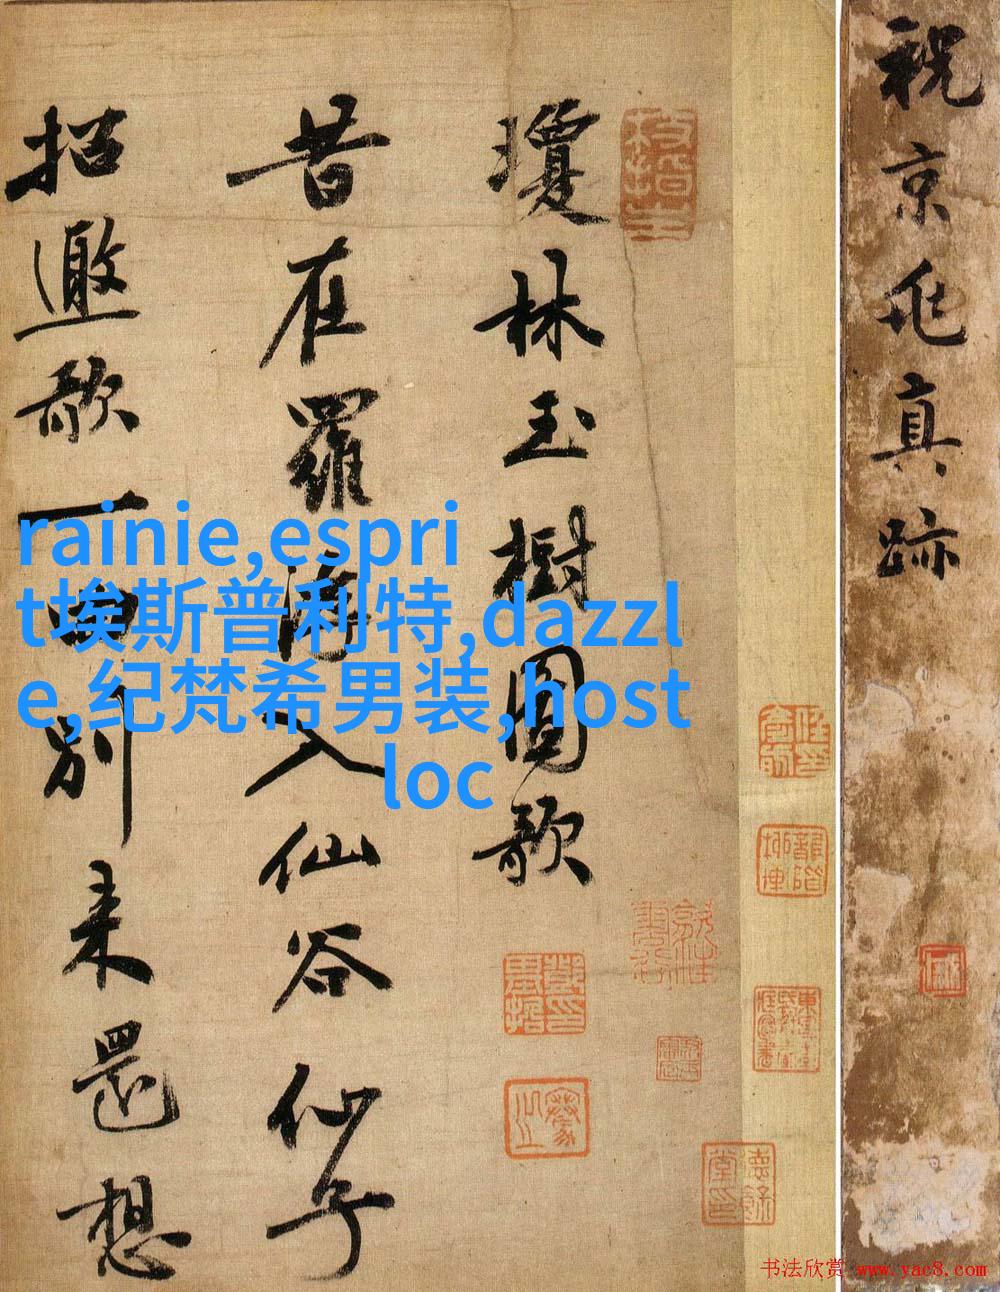 祝京兆真跡
瓊林玉樹圖歌
昔在羅浮入仙谷仙子
招邀歌一曲別来還想
rainie,esprit
t埃斯普利特,dazzl
e,纪梵希男装,host
loc
书法欣赏 www.yac8.com